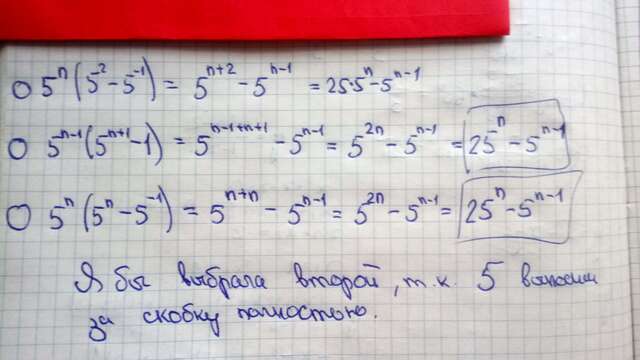 ○ 5ⁿ(5² - 5⁻¹) = 5ⁿ⁺² - 5ⁿ⁻¹ = 25·5ⁿ - 5ⁿ⁻¹
○ 5ⁿ⁻¹(5ⁿ⁺¹ - 1) = 5ⁿ⁻¹⁺ⁿ⁺¹ - 5ⁿ⁻¹ = 5²ⁿ - 5ⁿ⁻¹ = 25ⁿ - 5ⁿ⁻¹
○ 5ⁿ(5ⁿ - 5⁻¹) = 5ⁿ⁺ⁿ - 5ⁿ⁻¹ = 5²ⁿ - 5ⁿ⁻¹ = 25ⁿ - 5ⁿ⁻¹
Я бы выбрала второй, т.к. 5
за скобку полностью.